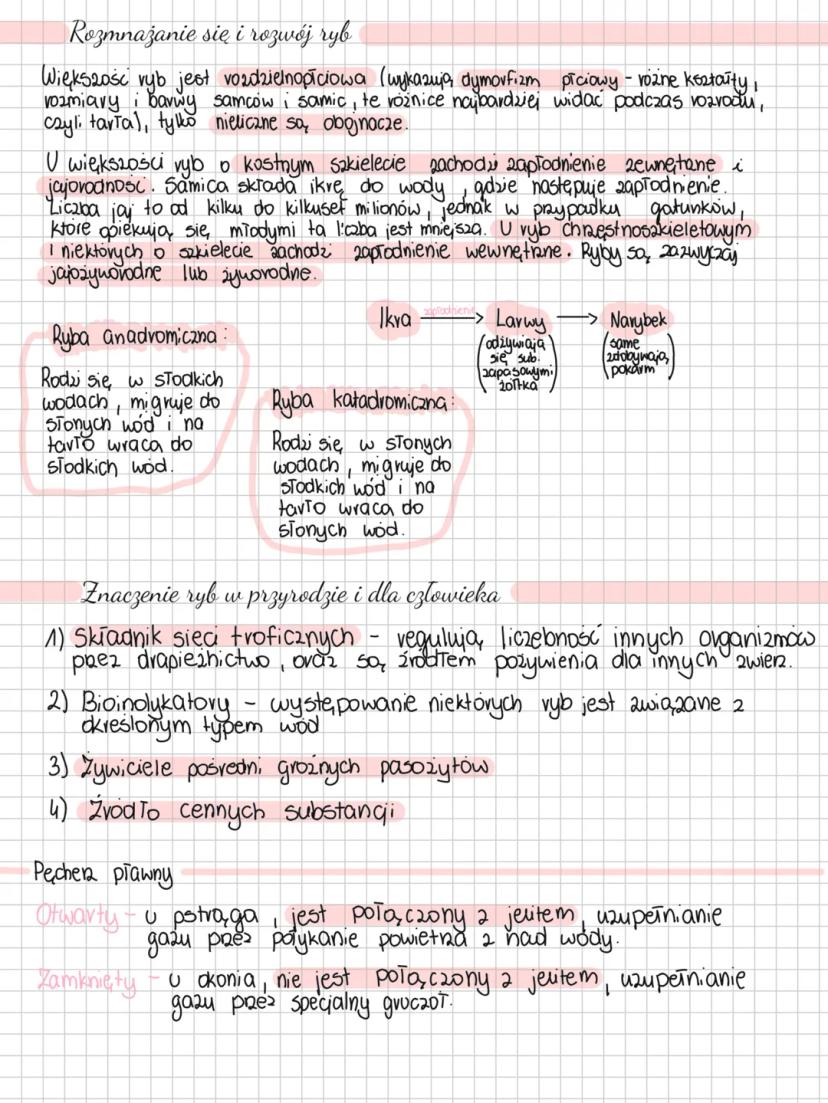 Rozmnażanie się i rozwój ryb
Większość ryb jest rozdzielnopłciowa (wykazują dymorfizm płciowy - różne kształty,
rozmiary i barwy samców i samic, te różnice najbardziej widać podczas rozrodu,
czyli tarła), tylko nieliczne są obojnacze.
U większości ryb o kostnym szkielecie zachodzi zapłodnienie zewnętrzne i
jajorodność. Samica składa ikrę do wody, gdzie następuje zapłodnienie.
Liczba jaj to od kilku do kilkuset milionów, jednak w przypadku gatunków,
które opiekują się młodymi ta liczba jest mniejsza. U ryb chrzęstnoszkieletowym
i niektórych o szkielecie zachodzi zapłodnienie wewnętrzne. Ryby są zazwyczaj
jajożyworodne lub żyworodne.
Ikra zapłodnienie → Larwy → Narybek
(odżywiają
się sub.
zapasowymi
żółtka)
(same
zdobywają
pokarm)
Ryba anadromiczna:
Rodzi się w słodkich
wodach, migruje do
słonych wód i na
tarło wraca do
słodkich wód.
Ryba katadromiczna:
Rodzi się w słonych
wodach, migruje do
słodkich wód i na
tarło wraca do
słonych wód.
Znaczenie ryb w przyrodzie i dla człowieka
1) Składnik sieci troficznych - regulują liczebność innych organizmów
przez drapieżnictwo, oraz są źródłem pożywienia dla innych zwierz.
2) Bioindykatory - występowanie niektórych ryb jest związane z
określonym typem wód
3) Żywiciele pośredni groźnych pasożytów
4) Źródło cennych substancji
Pęcherz pławny
Otwarty - u pstrąga, jest połączony z jelitem, uzupełnianie
gazu przez połykanie powietrza z nad wody.
Zamknięty - u okonia, nie jest połączony z jelitem, uzupełnianie
gazu przez specjalny gruczoł.